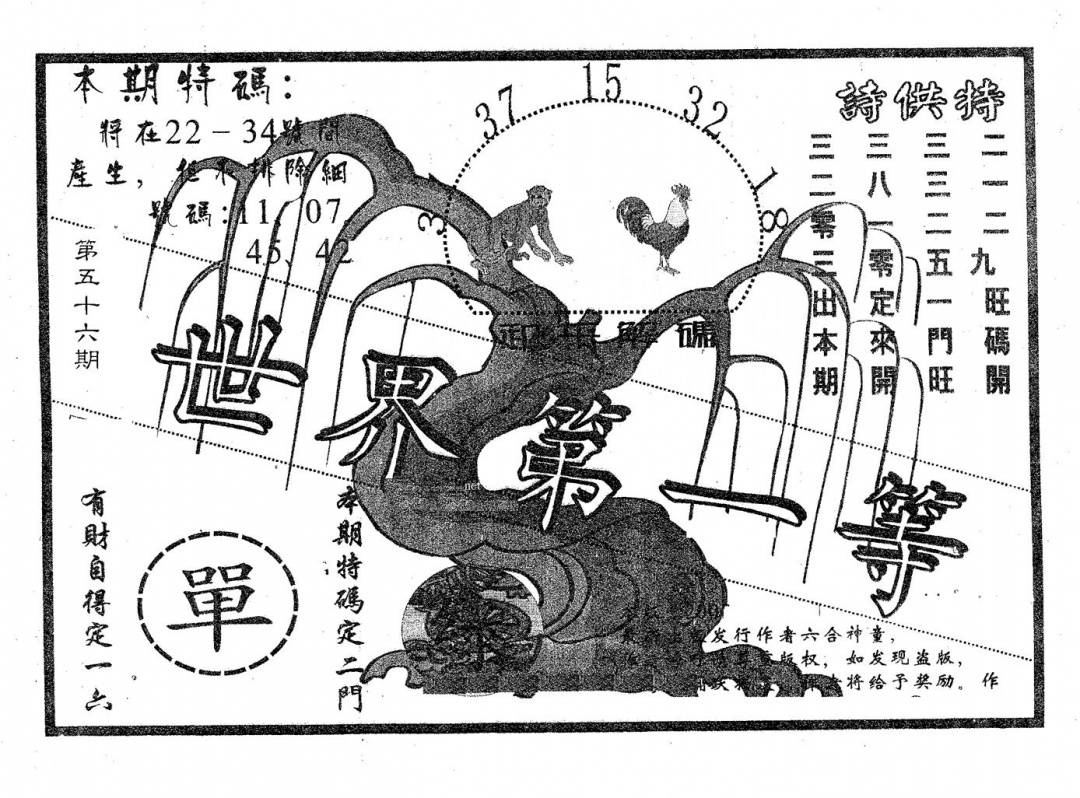 本期特碼：
將在22－34號間
產生，但不排除細
號碼：11、07、
45、42
第五十六期
37
15
32
18
特供詩
二一二九旺碼開
三三二五一門旺
三八一零定來開
三二零三出本期
解碼
世界第一等
有財自得定一六
單
本期特碼定二門
发行作者六合神童，
版权，如发现盗版，
将给予奖励。作